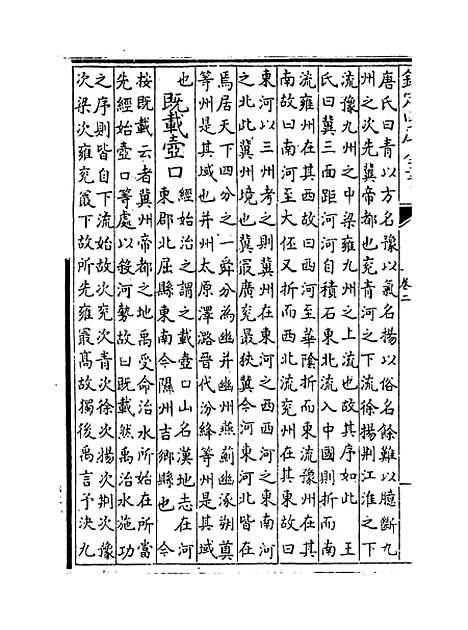 欽定四庫全書
卷二
唐氏曰青以方名豫以氣名揚以俗名餘難以臆斷九
州之次先冀帝都也兖青河之下流徐揚荆江淮之下
流豫九州之中梁雍九州之上流也故其序如此　王
氏曰冀三面距河河自積石東北流入中國則折而南
流雍州在其西故曰西河至華隂折而東流豫州在其
南故曰南河至大伾又折而西北流兖州在其東故曰
東河以三州考之則冀州在東河之西西河之東南河
之北此冀州境也冀㝡廣兖㝡狹今河東河北皆在
焉居天下四分之一舜分為幽并幽州燕薊幽涿朔莫
等州是其域也并州太原澤潞晉代汾絳等州是其域
也　既載壺口經始治之謂之載壺口山名漢地志在河
東郡北屈縣東南今隰州吉鄉縣也　今
按既載云者冀州帝都之地禹受命治水所始在所當
先經始壺口等處以殺河勢故曰既載然禹治水施功
之序則皆自下流始故次兖次青次徐次揚次荆次豫
次梁次雍兖㝡下故所先雍㝡髙故獨後禹言予決九